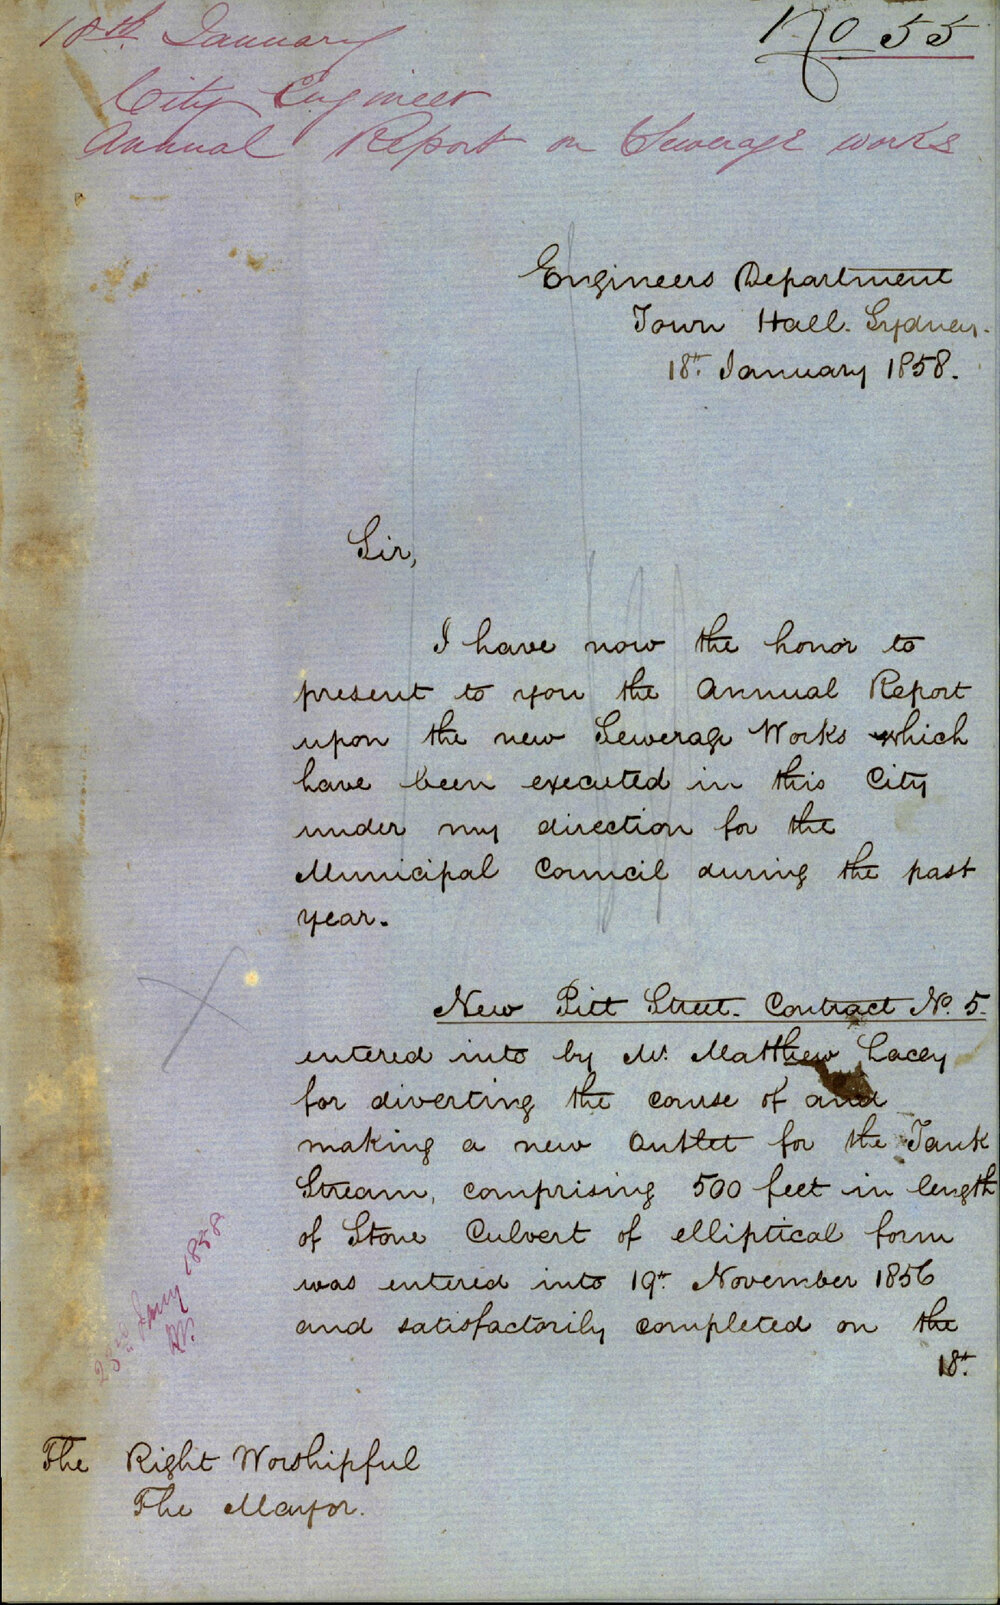 18th January
No 55
City Engineer
Annual Report on Sewerage works
Engineers Department
Town Hall. Sydney.
18th January 1858.
Sir,
I have now the honor to
present to you the Annual Report
upon the new Sewerage Works which
have been executed in this City
under my direction for the
Municipal Council during the past
year.
New Pitt Street. Contract No. 5.
entered into by Mr. Matthew Lacey
for diverting the course of and
making a new outlet for the Tank
Stream, comprising 500 feet in length
of Stone Culvert of elliptical form
was entered into 19th November 1856
and satisfactorily completed on the
18th
23rd Jany 1858
The Right Worshipful
The Mayor.